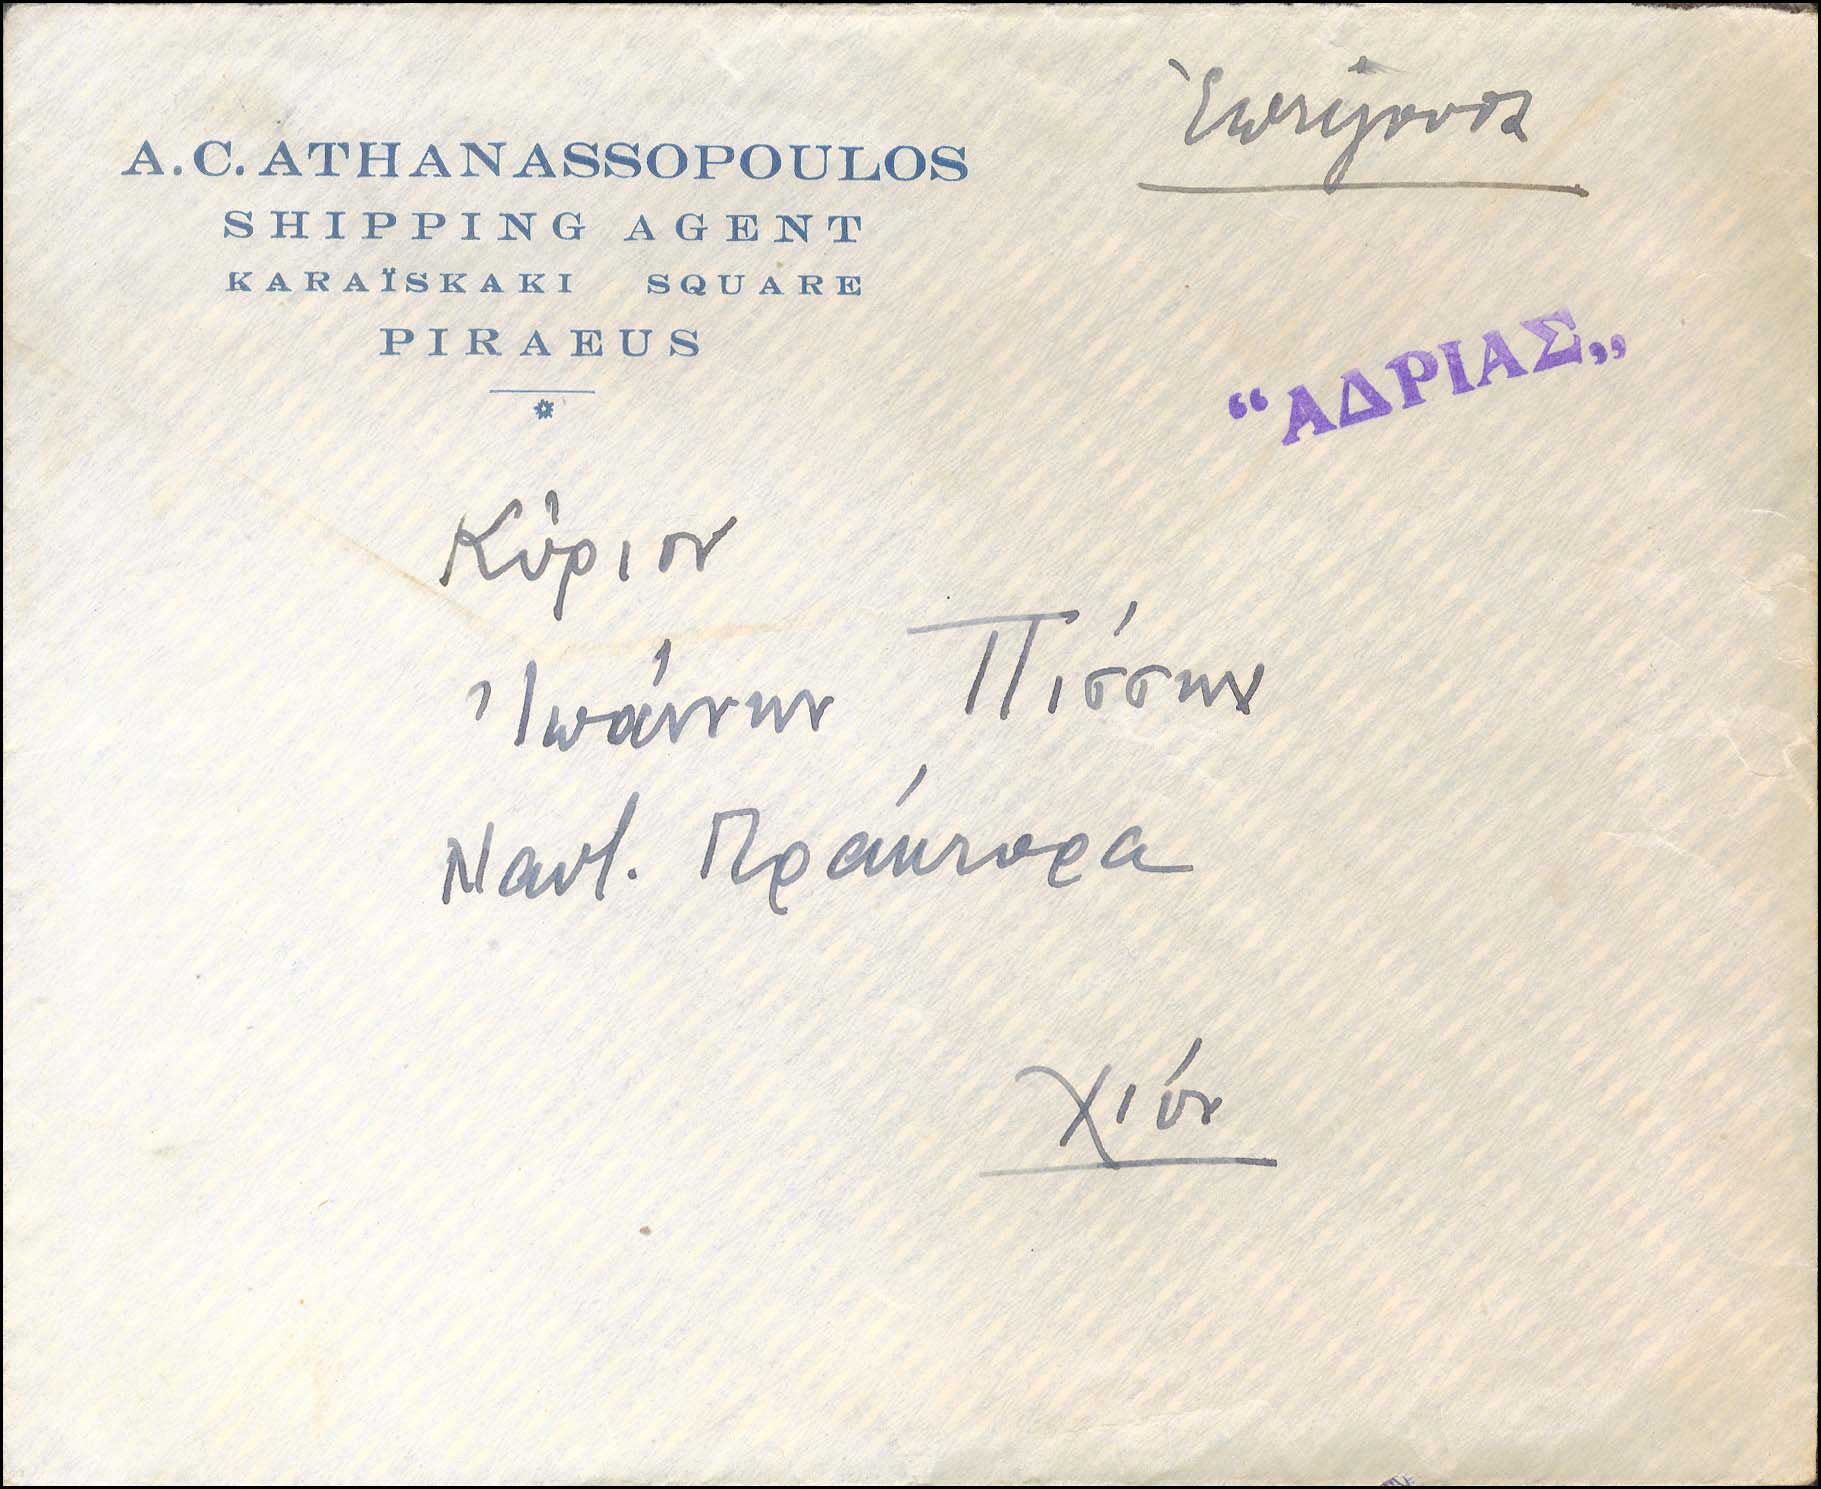 Ἐπείγουσα
A. C. ATHANASSOPOULOS
SHIPPING AGENT
KARAÏSKAKI SQUARE
PIRAEUS
“ΑΔΡΙΑΣ„
Κύριον
Ἰωάννην Πίσσην
Ναυτ. Πράκτορα
Χίον